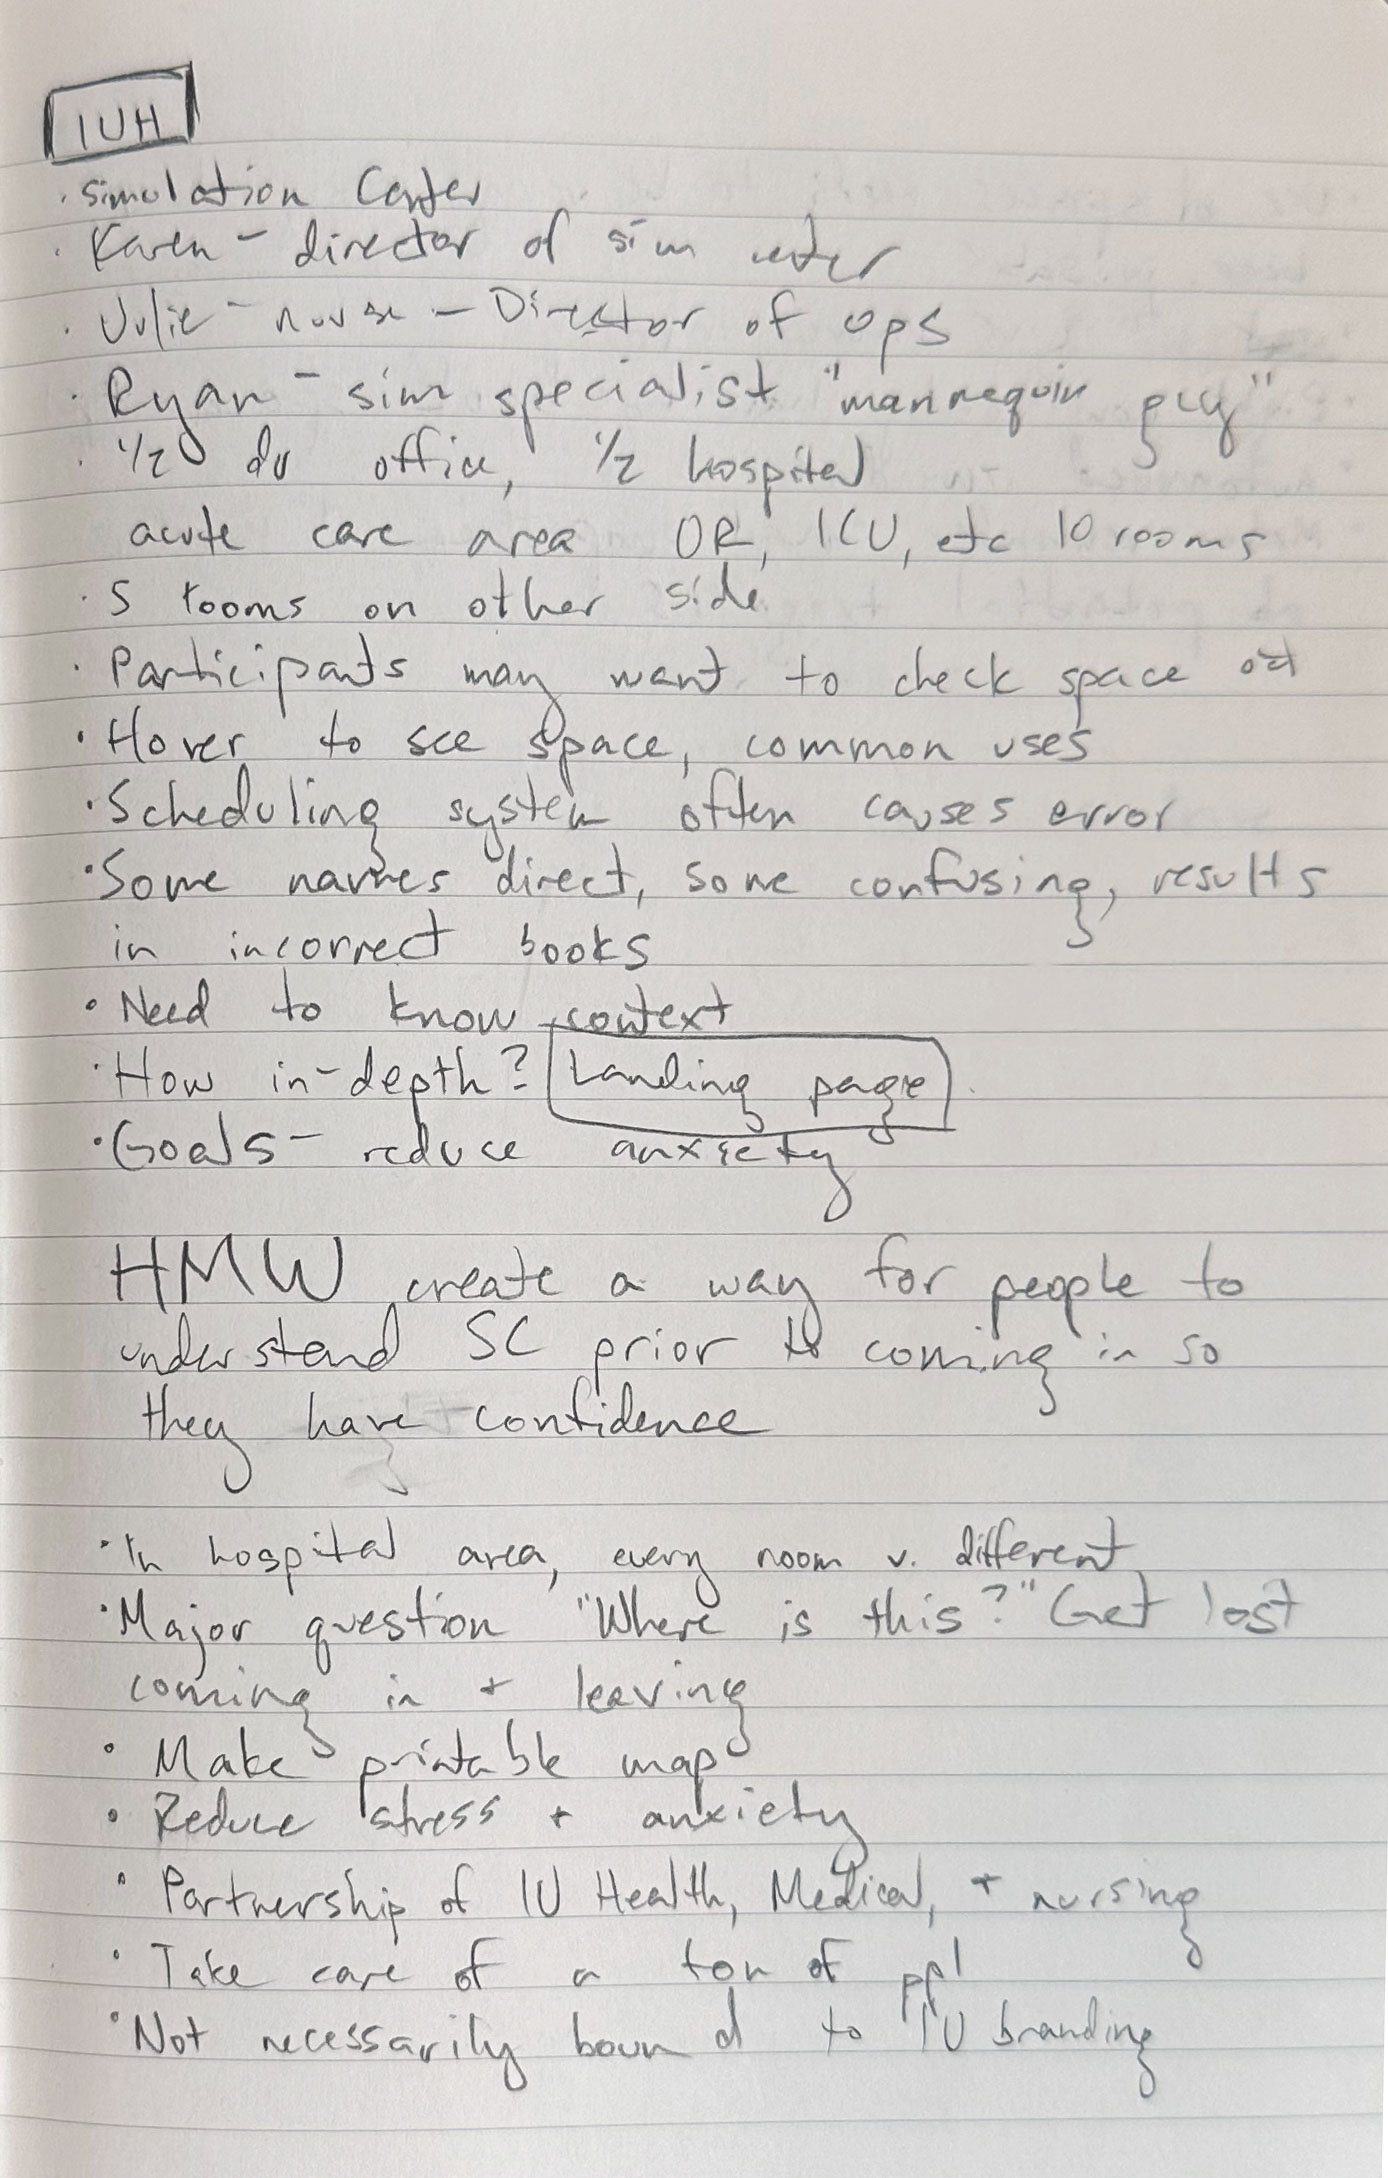 IUH
· Simulation Center
· Karen - director of sim center
· Julie - nurse - Director of ops
· Ryan - sim specialist "mannequin guy"
· 1/2 dr office, 1/2 hospital
acute care area OR, ICU, etc 10 rooms
· 5 rooms on other side
· Participants may want to check space out
· Hover to see space, common uses
· Scheduling system often causes error
· Some names direct, some confusing, results
in incorrect books
· Need to know context
· How in-depth? Landing page
· Goals - reduce anxiety
HMW create a way for people to
understand SC prior to coming in so
they have confidence
· In hospital area, every room v. different
· Major question "Where is this?" Get lost
coming in + leaving
· Make printable map
· Reduce stress + anxiety
· Partnership of IU Health, Medical, + nursing
· Take care of a ton of ppl
· Not necessarily bound to IU branding